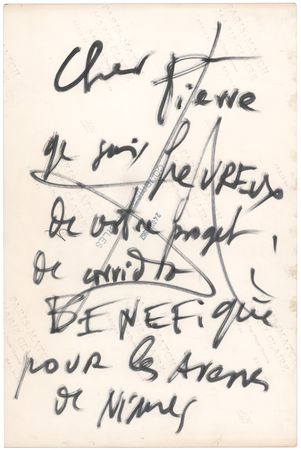 Cher Pierre
je suis heureux
de votre projet
de corrida
BENEFiquE
POUR les Arenes
de Nimes